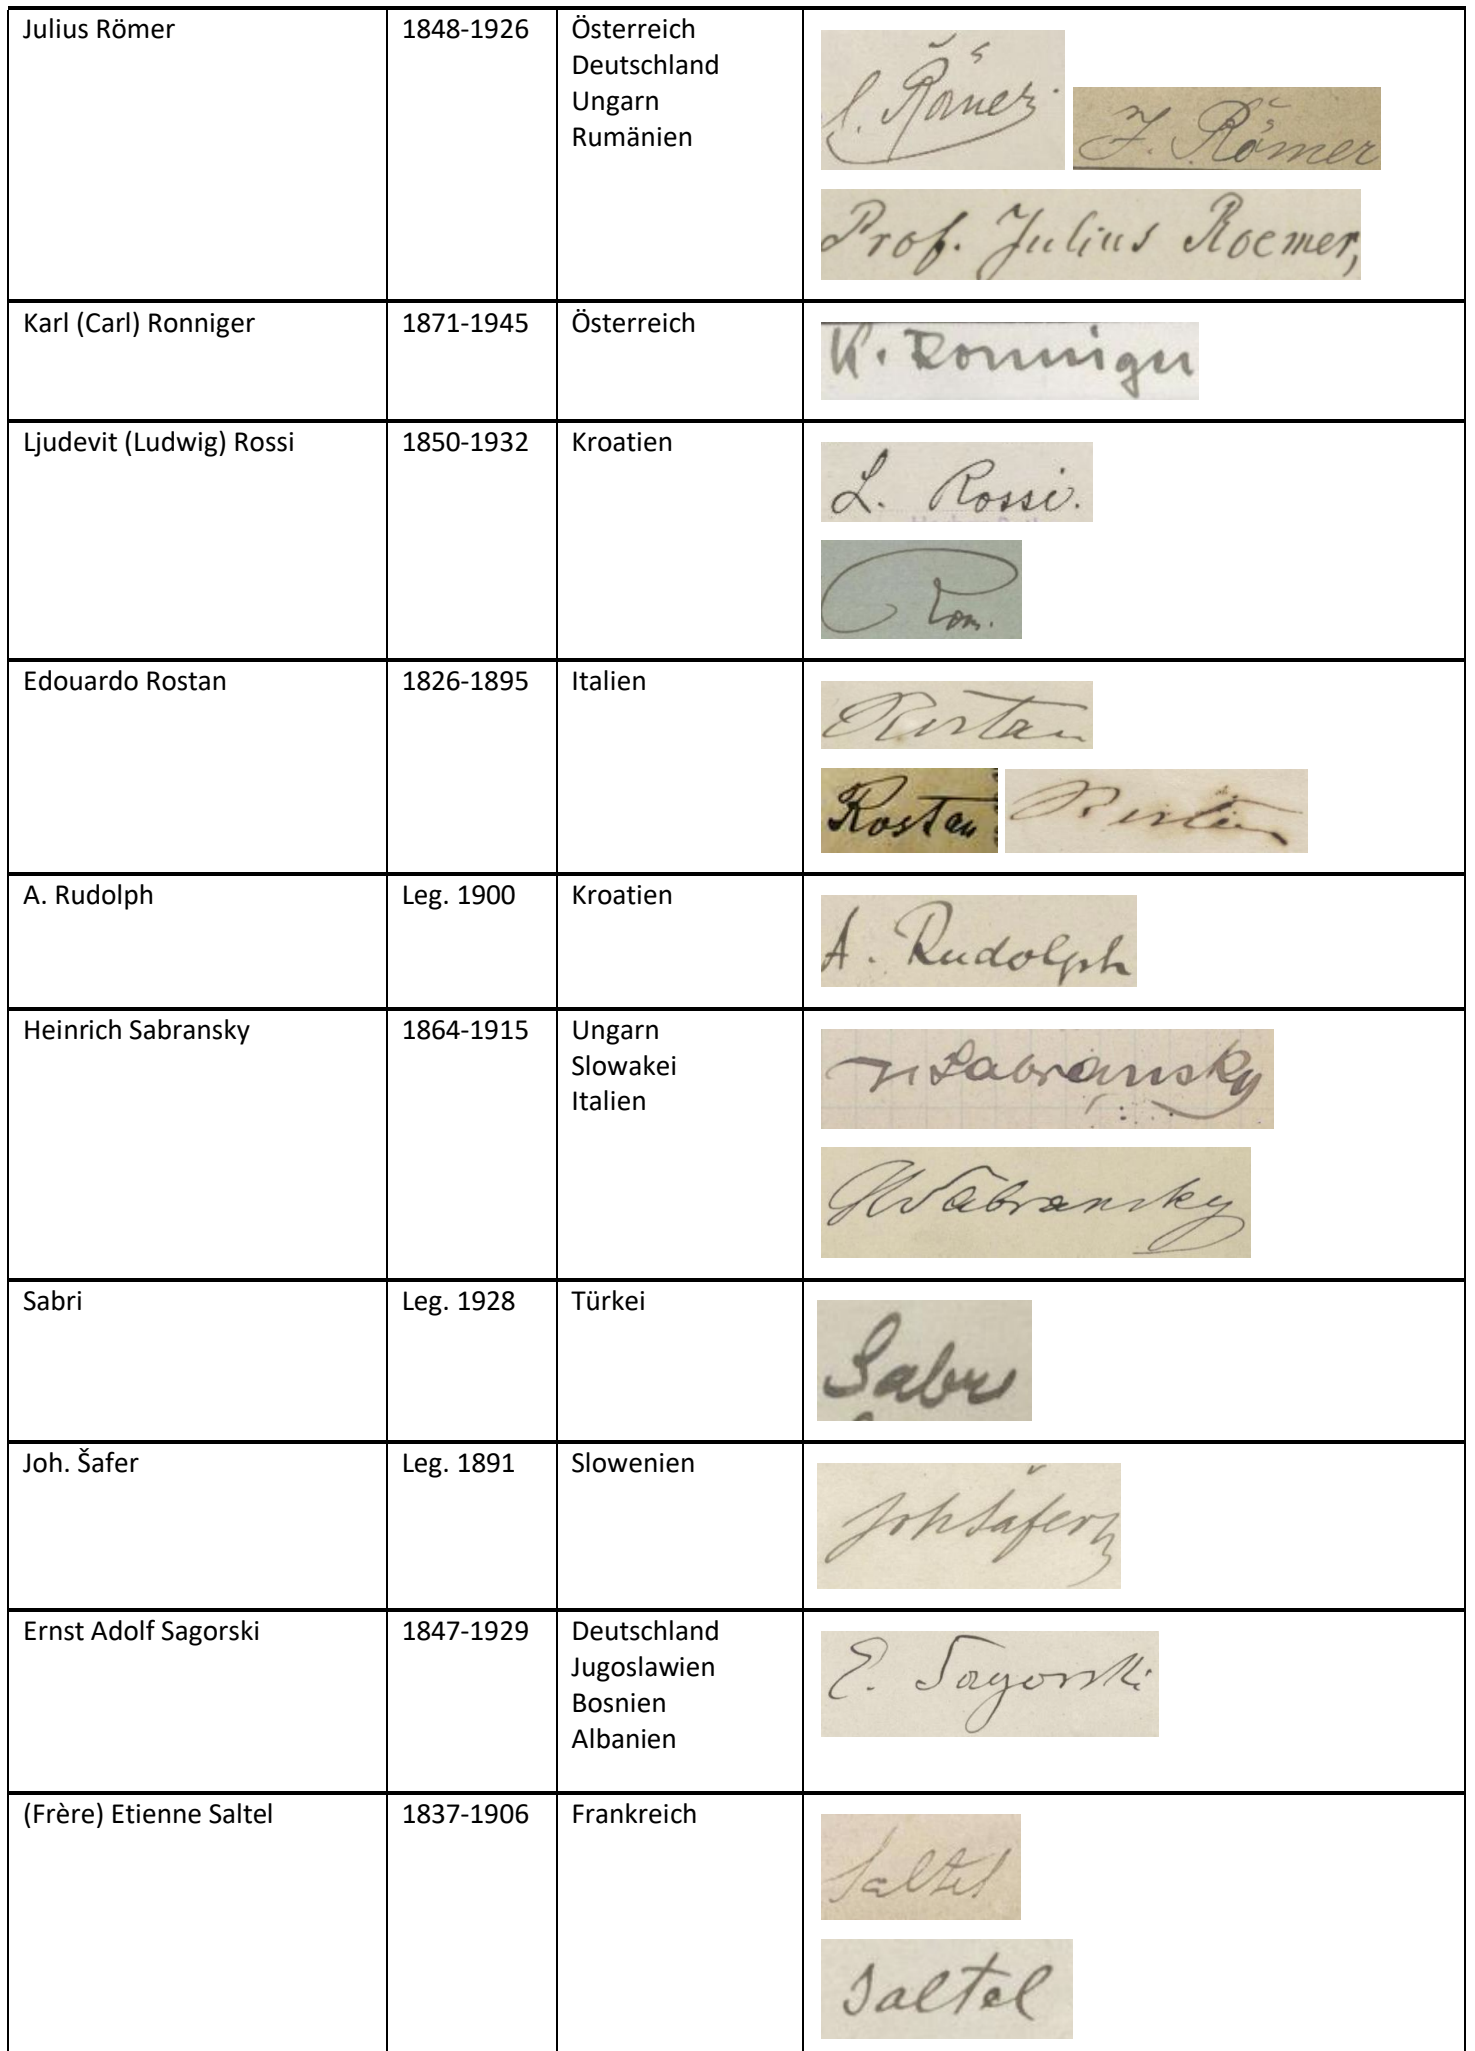 Julius Römer 1848-1926 Österreich
Deutschland
Ungarn
Rumänien
J. Römer.
J. Römer
Prof. Julius Roemer,
Karl (Carl) Ronniger 1871-1945 Österreich
K. Ronniger
Ljudevit (Ludwig) Rossi 1850-1932 Kroatien
L. Rossi.
Edouardo Rostan 1826-1895 Italien
Rostan
Rostan Rostan
A. Rudolph Leg. 1900 Kroatien
A. Rudolph
Heinrich Sabransky 1864-1915 Ungarn
Slowakei
Italien
HSabransky
HSabransky
Sabri Leg. 1928 Türkei
Sabri
Joh. Šafer Leg. 1891 Slowenien
Joh Šafer
Ernst Adolf Sagorski 1847-1929 Deutschland
Jugoslawien
Bosnien
Albanien
E. Sagorski
(Frère) Etienne Saltel 1837-1906 Frankreich
Saltel
Saltel